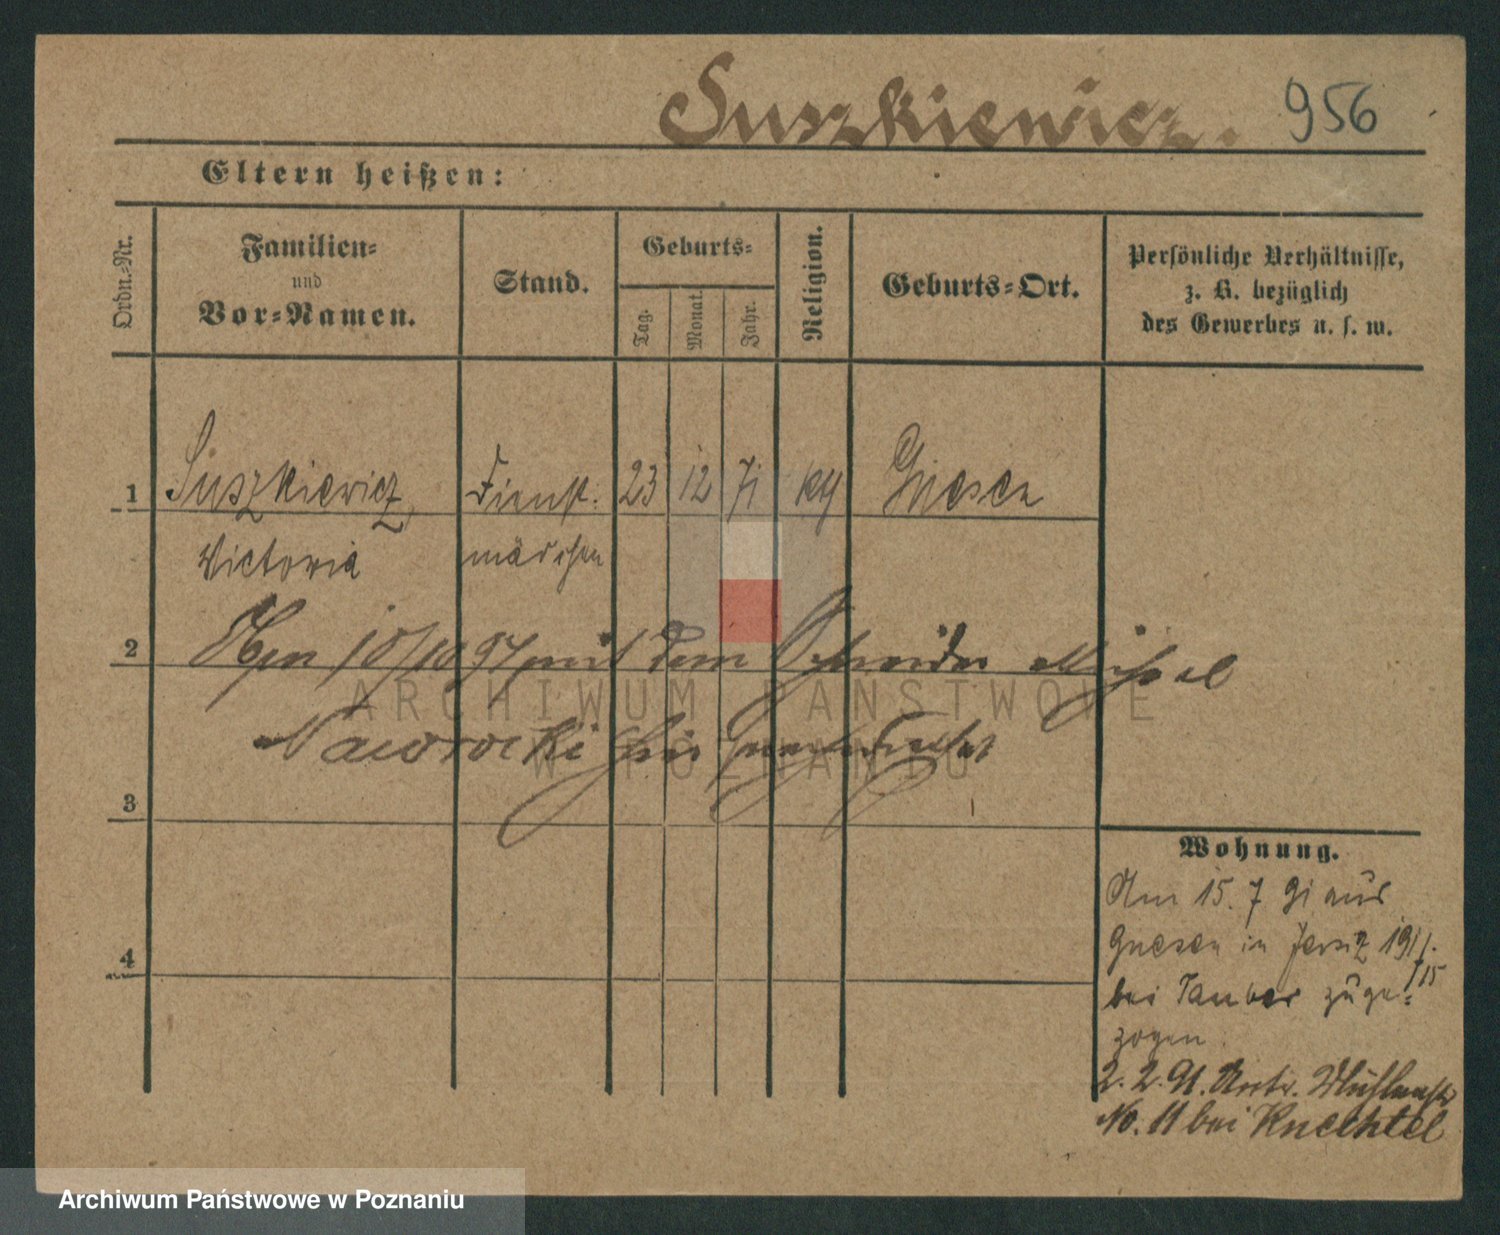 Suszkiewicz. 956
Eltern heißen:
Ordn.-Nr.
Familien-
und
Vor-Namen.
Stand.
Geburts-
Tag.
Monat.
Jahr.
Religion.
Geburts-Ort.
Persönliche Verhältnisse,
z. B. bezüglich
des Gewerbes u. s. w.
1 Suszkiewicz, Dienst- 23 12 71 kth Gnesen
Victoria mädchen
2 97 mit dem Schneider Michael
Nawrocki hier
3
4
Wohnung.
Am 15. 7 91 aus
Gnesen in Jersitz 191/
/15
bei Tauber zuge-
zogen.
2. 2. 91. Mühlenstr
No. 11 bei Knechtel
ARCHIWUM PAŃSTWOWE
W POZNANIU
Archiwum Państwowe w Poznaniu